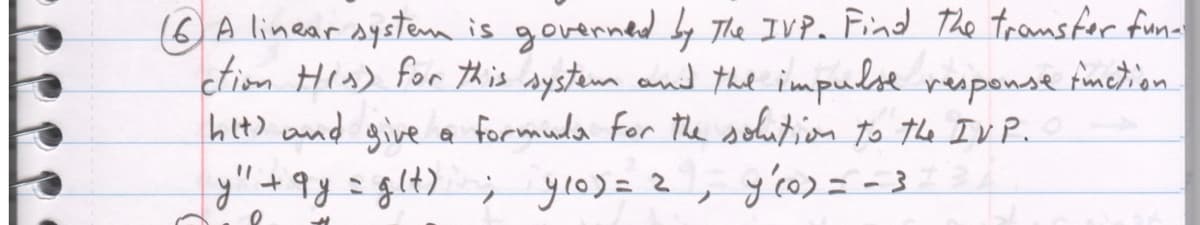 (6) A linear system is governed by The IVP. Find The transfer fun-
ction H(s) for this system and the impulse response function
h(t) and give a formula for the solution to the IVP.
y" + 9y = g(t) ; y(0) = 2 , y'(0) = -3